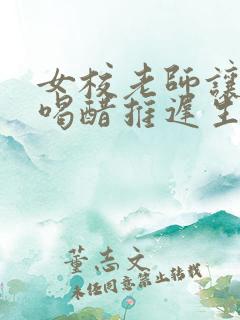 女校老師讓
喝醋推遲生
董志文
未经同意禁止转载